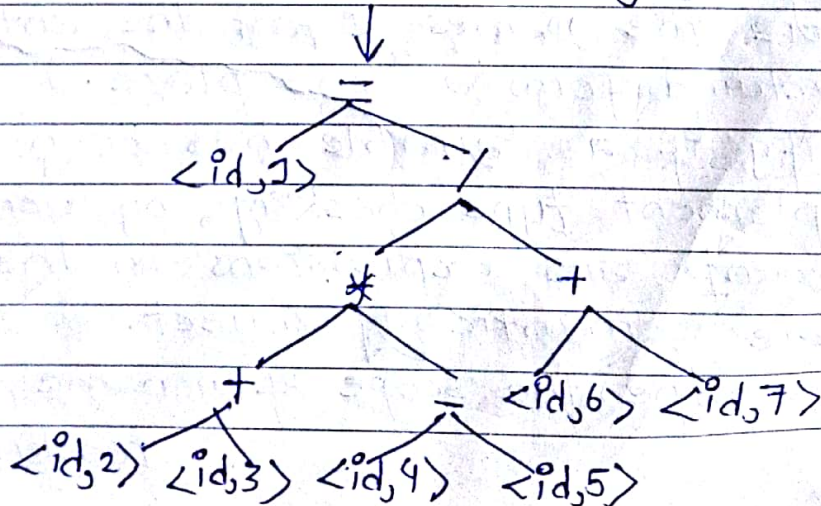 =
<id,1> /
* +
+ - <id,6> <id,7>
<id,2> <id,3> <id,4> <id,5>